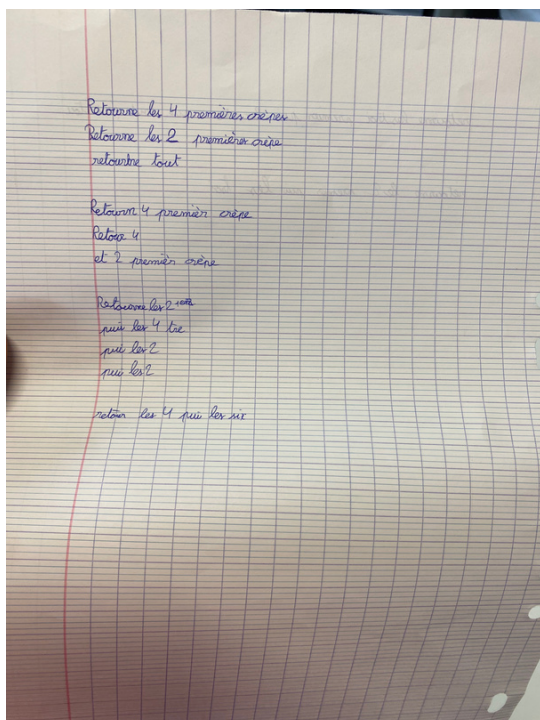 Retourne les 4 premières crèpes
Retourne les 2 premières crèpe
retourne tout
Retourn 4 premièr crèpe
4
et 2 premièr crèpe
Retourne les 2
puis les 4
puis les 2
puis les 2
retour les 4 puis les six